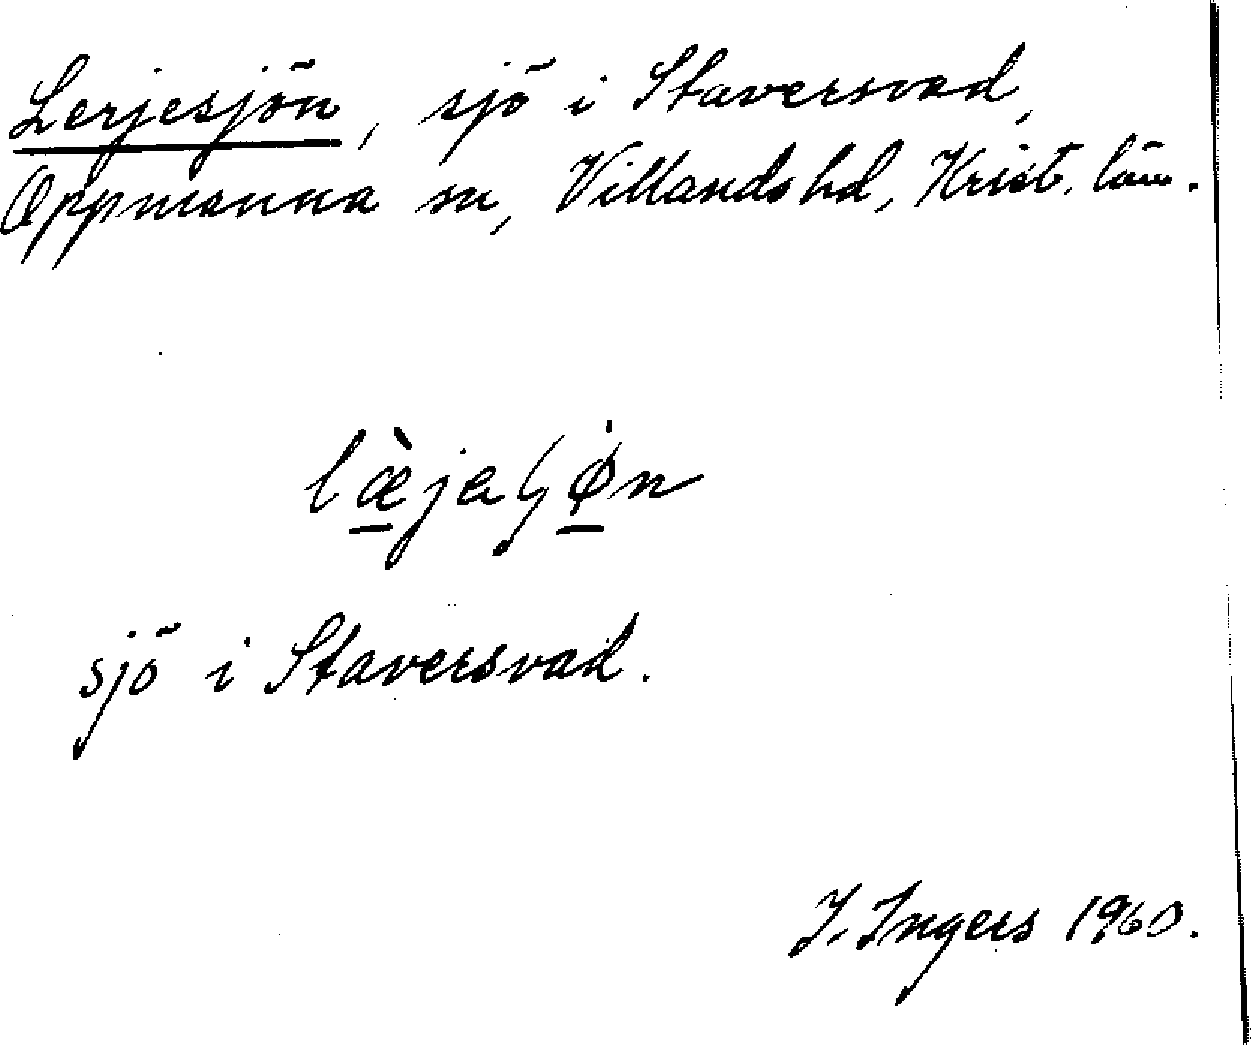 Lerjesjön, sjö i Staversvad,
Oppmanna sn, Villands hd, Krist. län.
læ̀jaʃø̇n
sjö i Staversvad.
I. Ingers 1960.